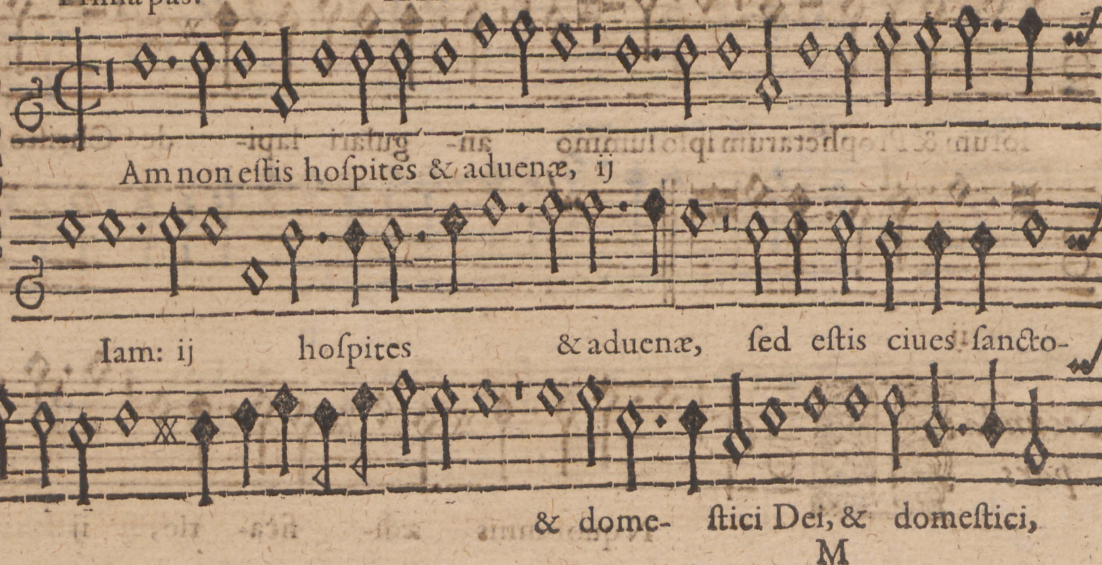 Prima pas.
Am non eſtis hoſpites & aduenæ, ij
Iam: ij hoſpites & aduenæ, ſed eſtis ciues ſancto-
& dome- ſtici Dei, & domeſtici,
M